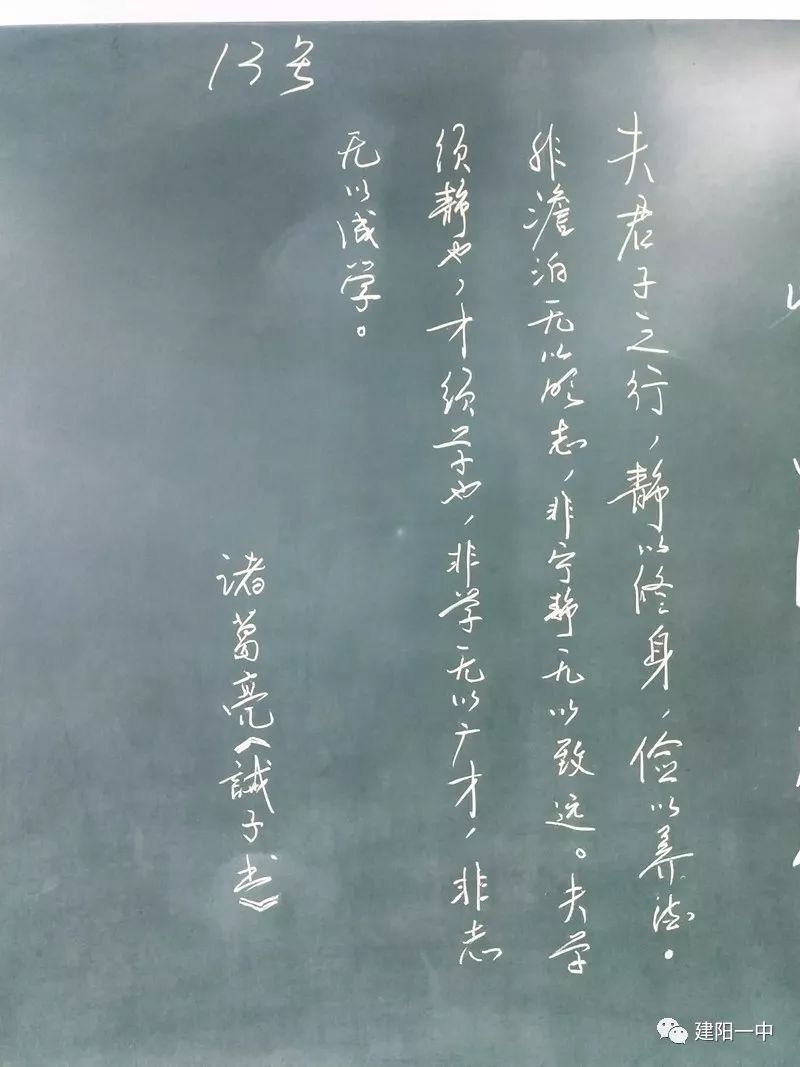 13号
夫君子之行，静以修身，俭以养德。
非澹泊无以明志，非宁静无以致远。夫学
须静也，才须学也，非学无以广才，非志
无以成学。
诸葛亮《誡子书》
建阳一中